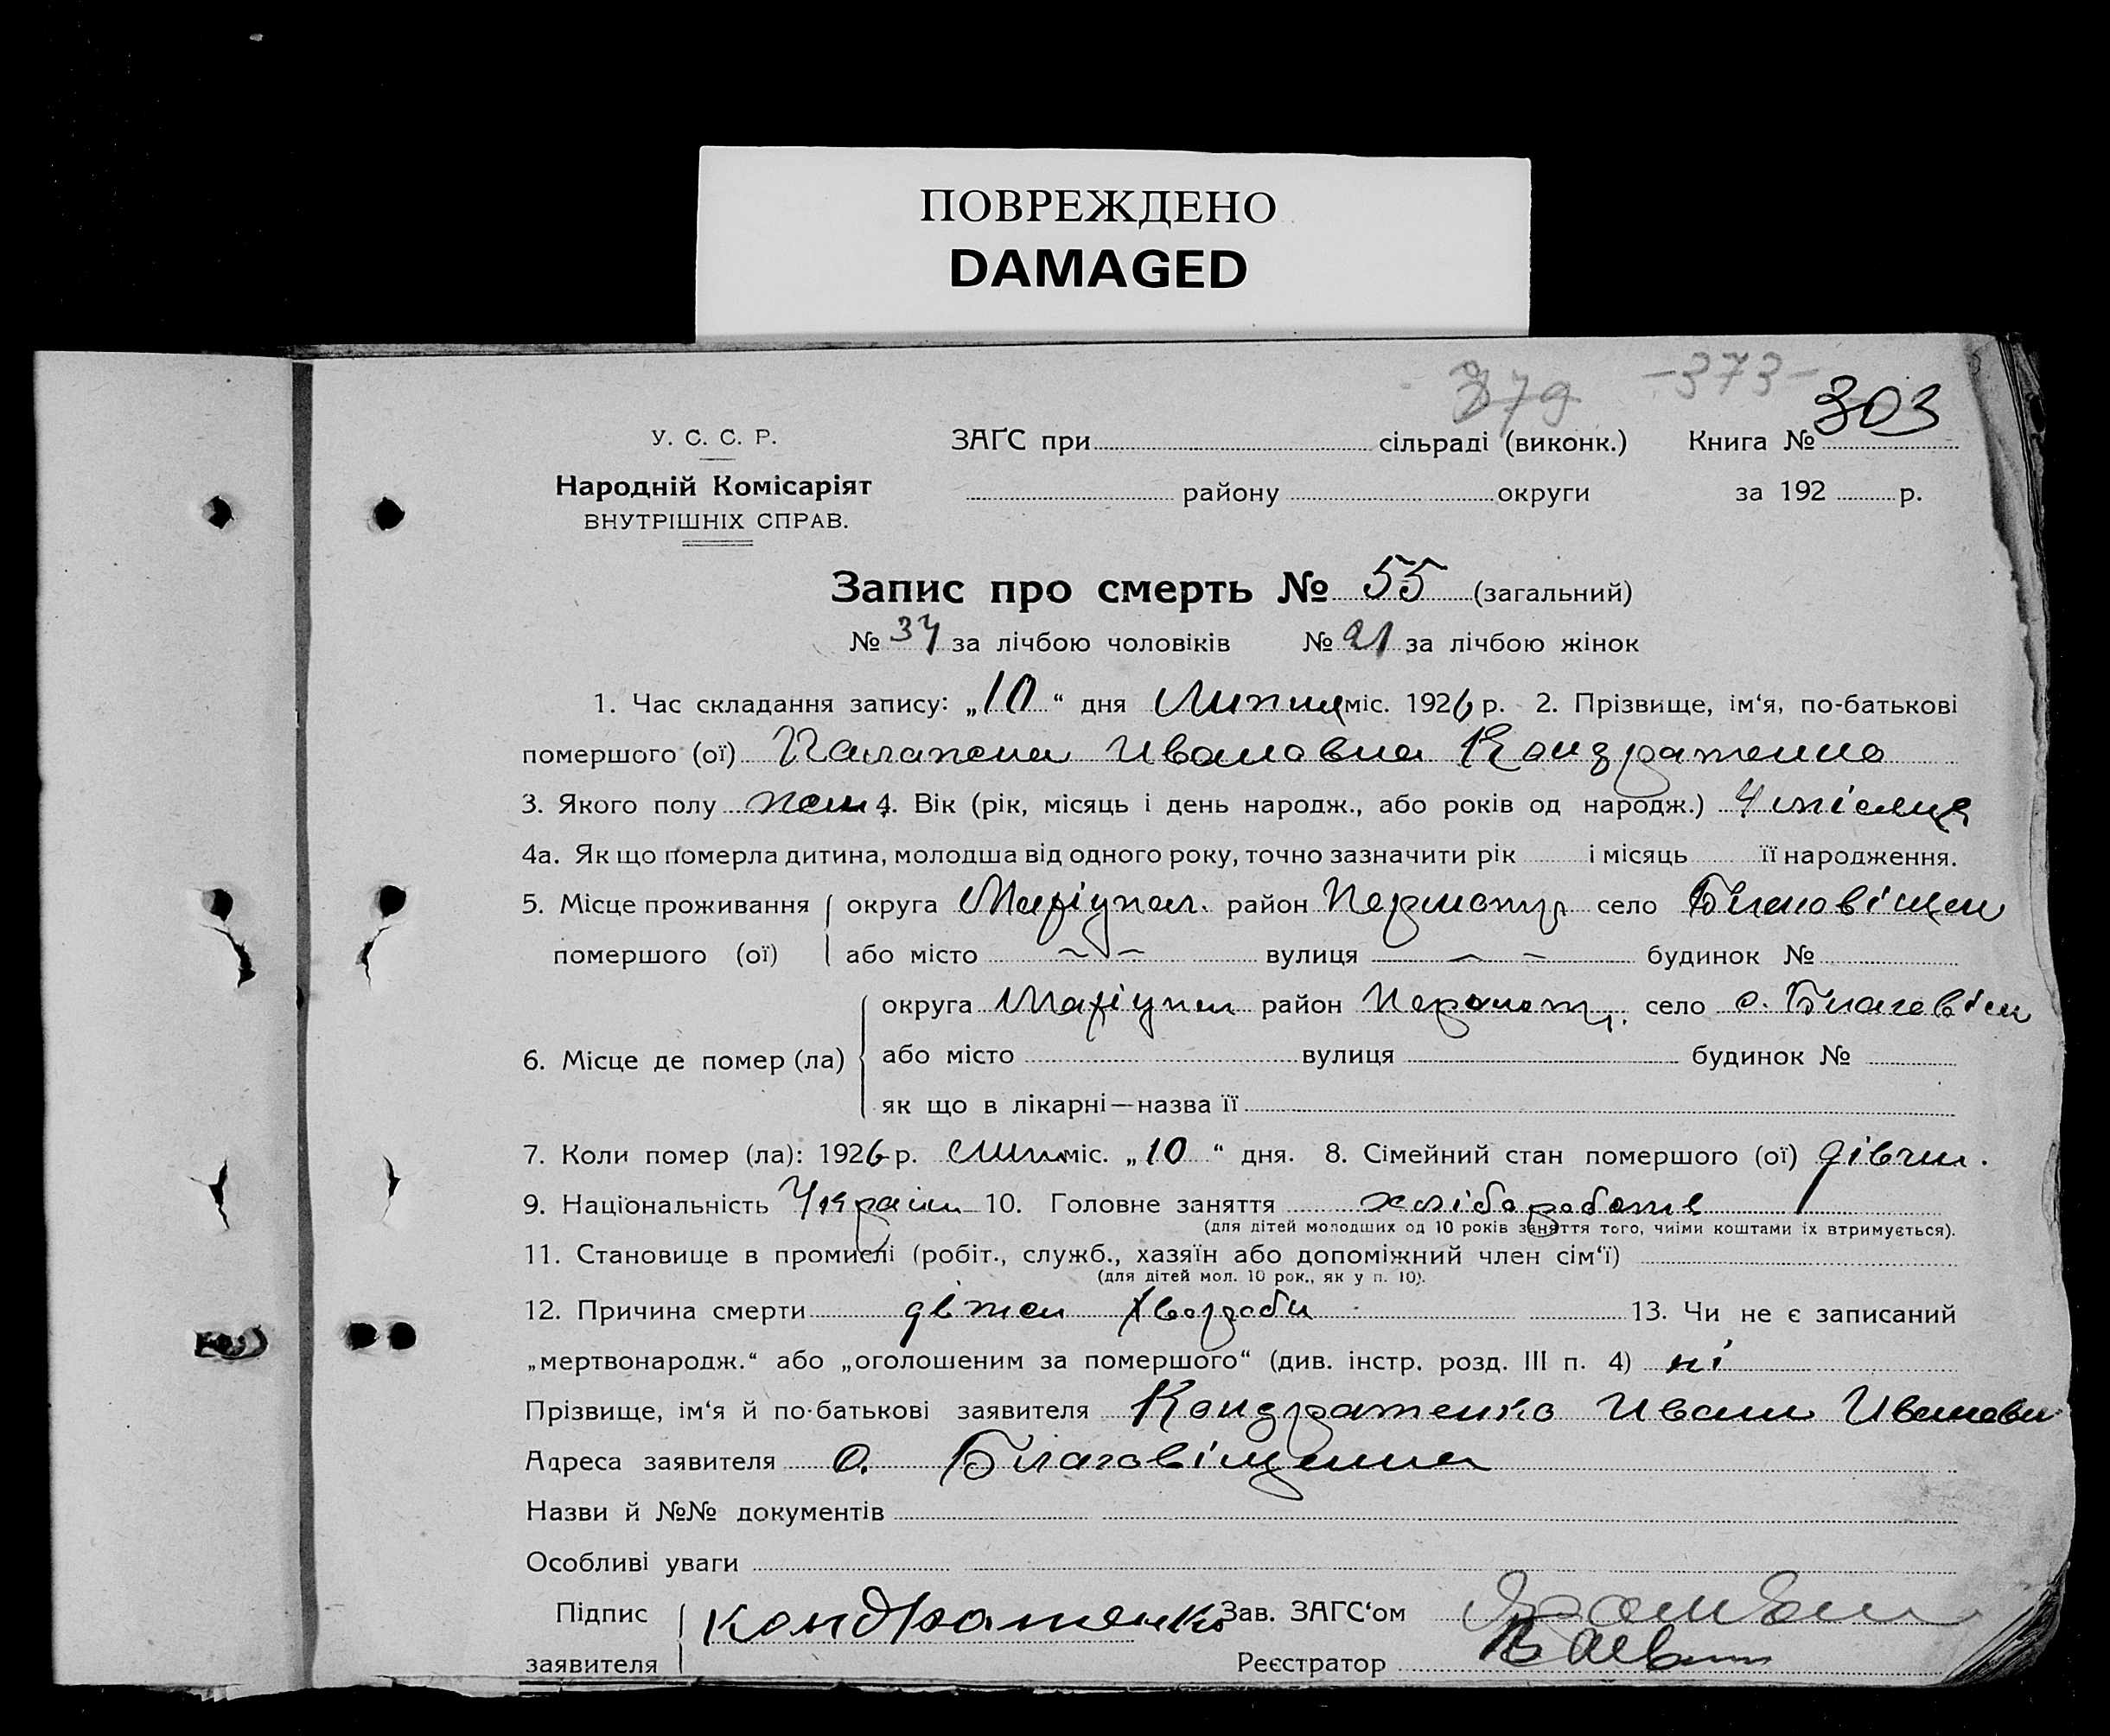 ПОВРЕЖДЕНО
DAMAGED
379 -373-
303
У. С. С. Р.
ЗАҐС при сільраді (виконк.) Книга №
Народній Комісаріят
району округи за 192 р.
ВНУТРІШНІХ СПРАВ.
Запис про смерть № 55 (загальний)
№ 34 за лічбою чоловіків № 21 за лічбою жінок
1. Час складання запису: „10“ дня Липня міс. 1926 р. 2. Прізвище, ім‘я, по-батькові
помершого (ої) Палажка Ивановна Кондратенко
3. Якого полу жен 4. Вік (рік, місяць і день народж., або років од народж.) 4 місяця
4а. Як що померла дитина, молодша від одного року, точно зазначити рік і місяць її народження.
5. Місце проживання округа Маріупол. район село Благовіщен
помершого (ої) або місто вулиця будинок №
округа Маріупол район село с. Благовіщ
6. Місце де помер (ла) або місто вулиця будинок №
як що в лікарні—назва її
7. Коли помер (ла): 1926 р. Липн міс. „10“ дня. 8. Сімейний стан помершого (ої) дівчин.
9. Національність Україн 10. Головне заняття хліборобств
(для дітей молодших од 10 років заняття того, чиїми коштами їх втримується).
11. Становище в промислі (робіт., служб., хазяїн або допоміжний член сім‘ї)
(для дітей мол. 10 рок., як у п. 10).
12. Причина смерти хвороби 13. Чи не є записаний
„мертвонародж.“ або „оголошеним за помершого“ (див. інстр. розд. III п. 4) ні
Прізвище, ім‘я й по-батькові заявителя Кондратенко Иван Иванови
Адреса заявителя с. Благовіщенка
Назви й №№ документів
Особливі уваги
Підпис Кондратенко Зав. ЗАГС‘ом
заявителя Реєстратор